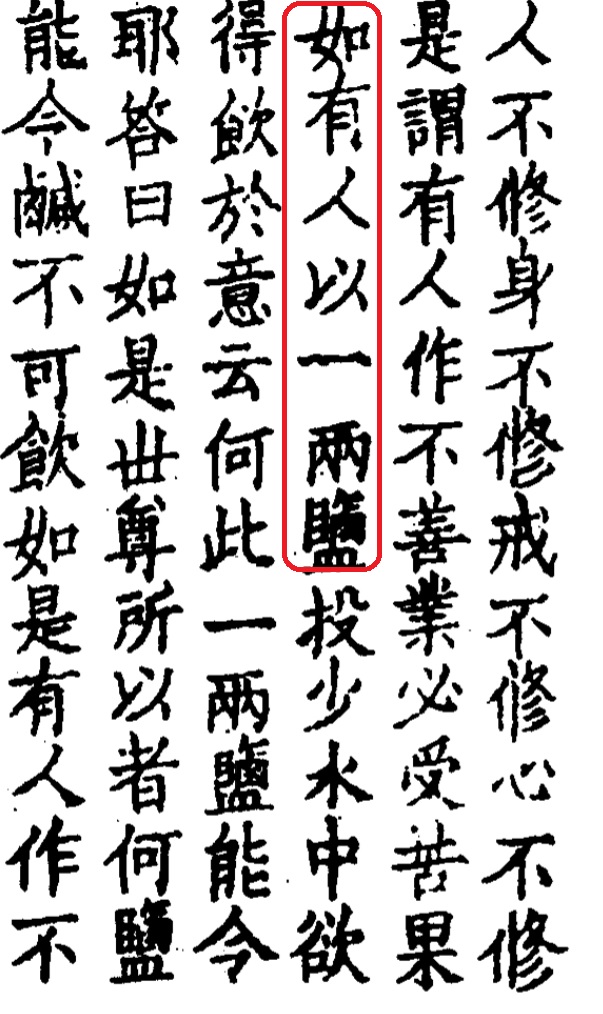 人不修身不修戒不修心不修
是謂有人作不善業必受苦果
如有人以一兩鹽投少水中欲
得飲於意云何此一兩鹽能令
耶答曰如是世尊所以者何鹽
能令鹹不可飲如是有人作不